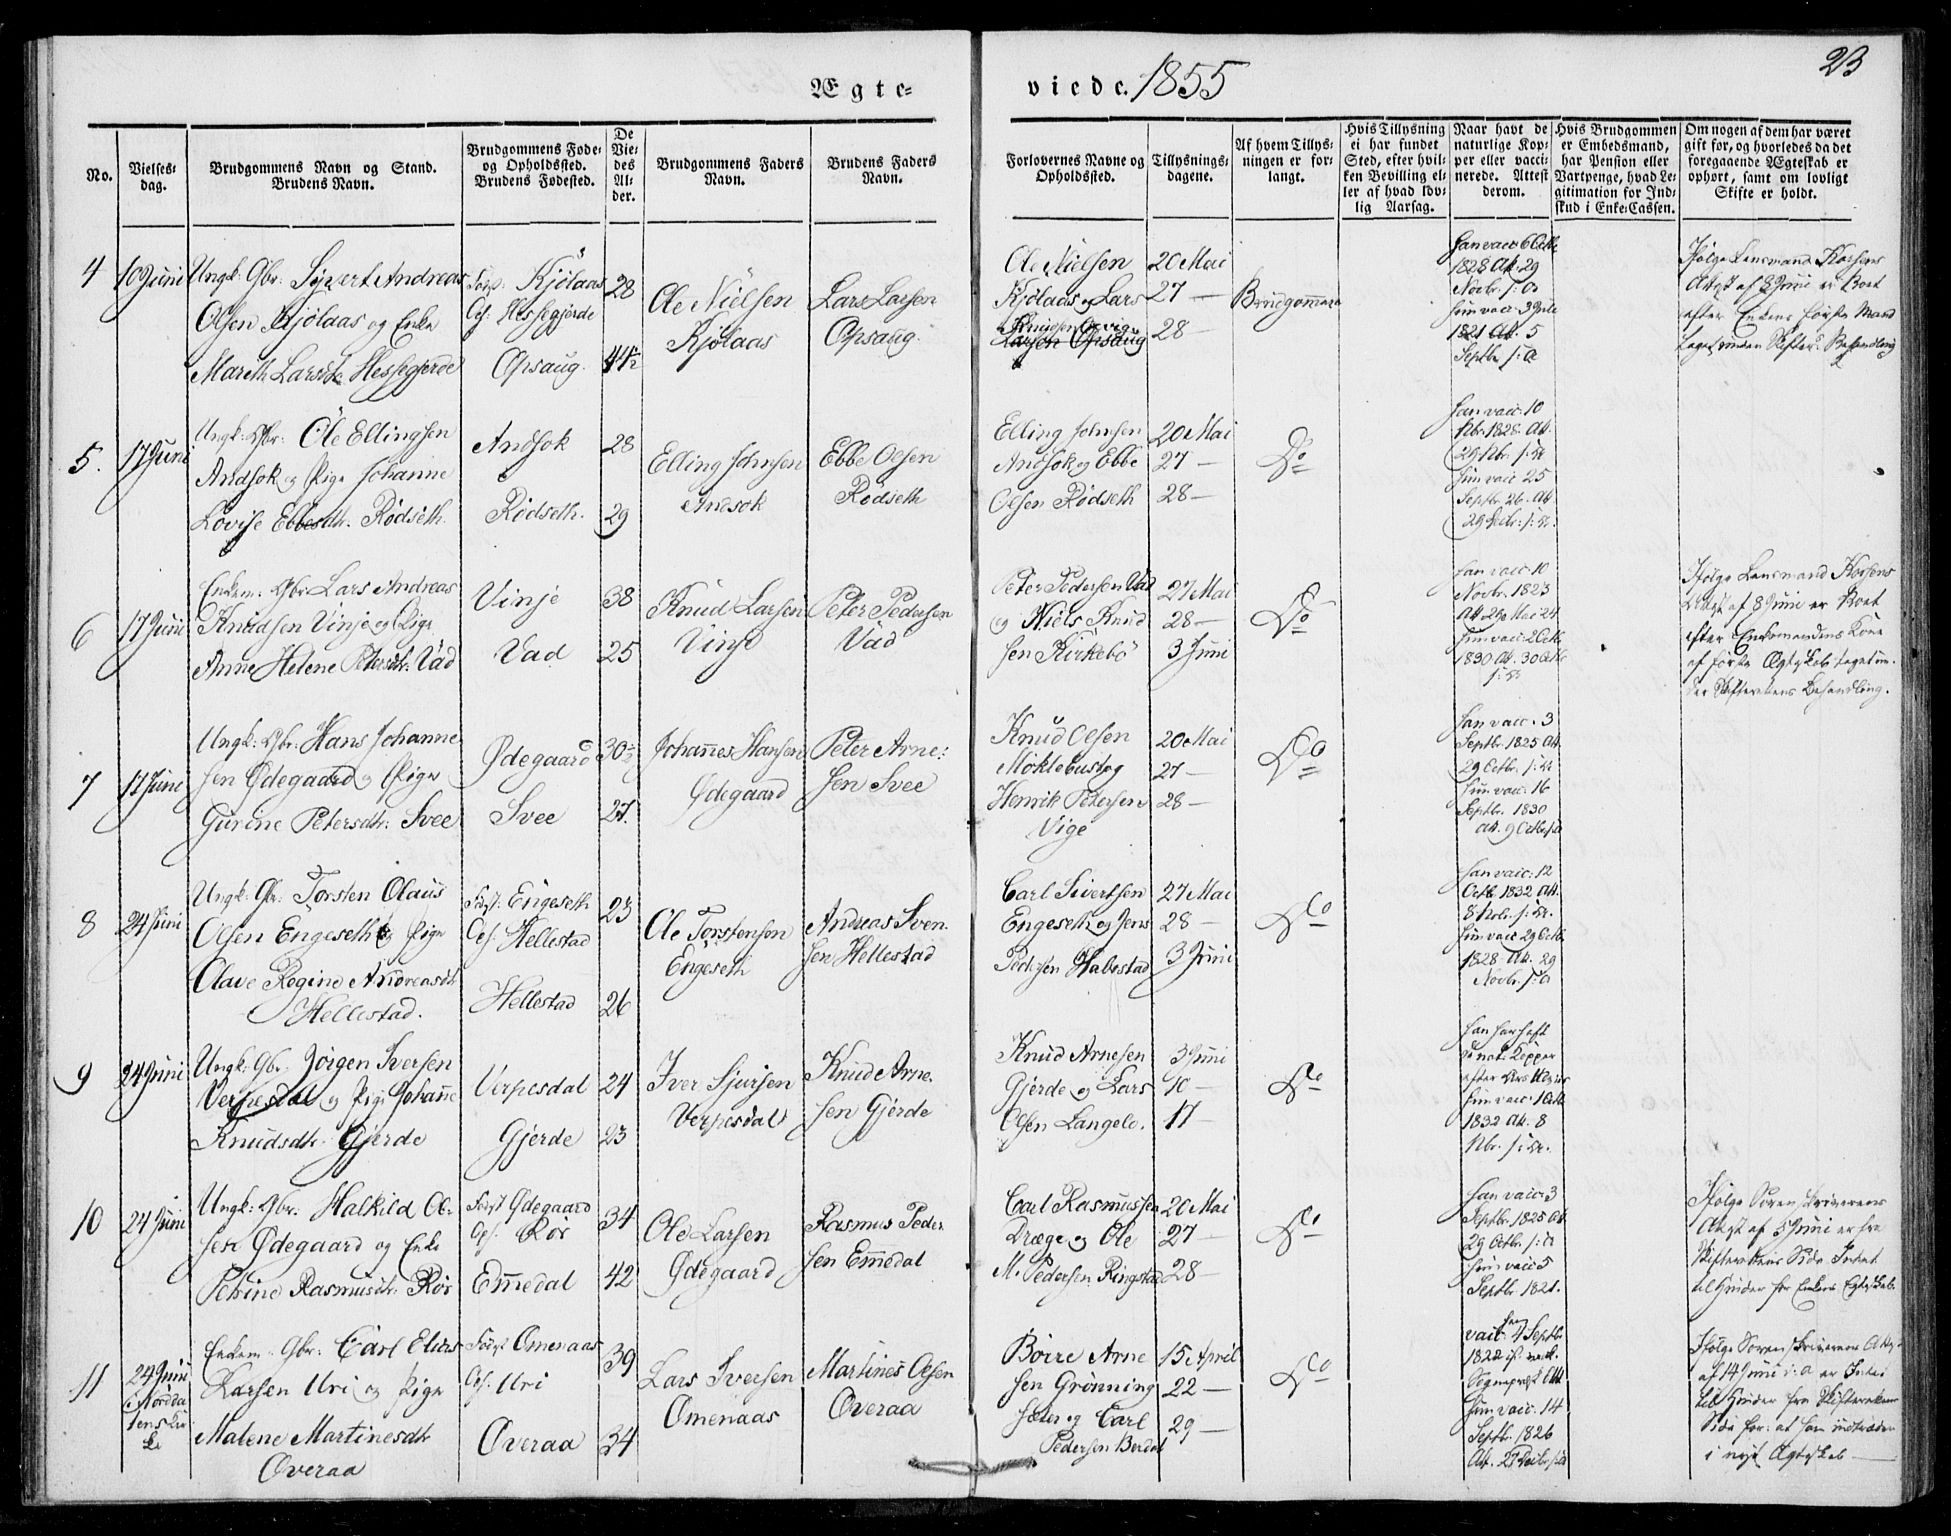 Ægte-
viede. 1855
23
No.
Vielses-
dag.
Brudgommens Navn og Stand.
Brudens Navn.
Brudgommens Føde-
og Opholdssted.
Brudens Fødested.
De
Vie-
des
Al-
der.
Brudgommens Faders
Navn.
Brudens Faders
Navn.
Forlovernes Navne og
Opholdssted.
Tillysnings-
dagene.
Af hvem Tillys-
ningen er for-
langt.
Hvis Tillysning
ei har fundet
Sted, efter hvil-
ken Bevilling el-
ler af hvad lov-
lig Aarsag.
Naar havt de
naturlige Kop-
per eller vacci-
nerede. Attest
derom.
Hvis Brudgommen
er Embedsmand,
har Pension eller
Vartpenge, hvad Le-
gitimation for Ind-
skud i Enke-Cassen.
Om nogen af dem har været
gift før, og hvorledes da det
foregaaende Ægteskab er
ophørt, samt om lovligt
Skifte er holdt.
4
10 Juni
Ungk: Gbr: Sivert Andreas
Olsen Kjölaas og Enke
Mareth Larsdtr Hessegjerde
Födt: Kjölaas
Op: Hessegjerde
Opsaug
28
44½
Ole Nielsen
Kjölaas
Lars Larsen
Opsaug
Ole Nielsen
Kjölaas og Lars
Knudsen
Larsen Opsaug
20 Mai
27 —
28 —
Brudgommen
Han vacc: 6 Octb
1828 Att. 29
Novbr. s: A
Hun vacc: 3 Jule
1821 Att. 5
Septb s: A
Ifölge Lensmand Korsens
Attest af 8 Juni er Boet
efter Enkens förste Mand
taget under Skifter: Behandling
5.
17 Juni
Ungk: Gbr: Ole Ellingsen
Andsok og Pige Johanne
Lovise Ebbesdtr. Rödseth
Andsok
Rödseth.
28
29
Elling Johnsen
Andsok
Ebbe Olsen
Rödseth
Elling Johnsen
Andsok og Ebbe
Olsen Rödseth
20 Mai
27 —
28 —
Do
Han vacc: 10
Nbr. 1828. Att.
29 Nbr. s: A
Hun vacc 25
Septbr. 26. Att
29 Decbr: s: A.
6
17 Juni
Enkem: Gbr Lars Andreas
Knudsen Vinje og Pige
Anne Helene Petersdtr. Vad
Vinje
Vad
38
25
Knud Larsen
Vinje
Peter Pedersen
Vad
Peter Pedersen Vad
og Niels Knud
sen Kirkebö
27 Mai
28 —
3 Juni
Do
Han vacc: 10
Novbr. 1823
Att 29 Mai 24
Hun vacc: 2 Octb
1830 Att. 30 Octb
s: A
Ifölge Lensmand Korsens
Attest af 8 Juni er Boet
efter Enkemandens Kone
af förste Ægteskab taget un-
der Skifterettens Behandling.
7
17 Juni
Ungk: Gbr: Hans Johanne
sen Ødegaard og Pige
Gurine Petersdtr: Svee
Ødegaard
Svee
30½
27.
Johannes Hansen
Ødegaard
Peter Arne:
sen Svee
Knud Olsen
Moklebust og
Henrik Petersen
Vige
20 Mai
27 —
28 —
Do
Han vacc: 3
Septbr. 1825 Att.
29 Octbr. s: A
Hun vacc: 16
Septbr. 1830
Att. 9 Octbr s: A
8
24 Juni
Ungk: Gbr. Torsten Olaus
Olsen Engeseth og Pige
Olave Regine Andreasdtr
Hellestad.
Födt: Engeseth
Op: Hellestad
Hellestad
23
26
Ole Torstensen
Engeseth
Andreas Sven
sen Hellestad
Carl Sivertsen
Engeseth og Jens
Pedersen Habestad
27 Mai
28 —
3 Juni
Do
Han vacc: 12
Octb 1832 Att.
8 Nvb. s: A.
Hun vacc 29 Octb
1828 Att. 29
Novbr. s: A
9
24 Juni
Ungk: Gbr: Jörgen Iversen
Verpesdal og Pige Johanne
Knudsdtr. Gjerde
Verpesdal
Gjerde
24
23
Iver Sjursen
Verpesdal
Knud Arne
sen Gjerde
Knud Arnesen
Gjerde og Lars
Olsen Langelo.
3 Juni
10 —
17 —
Do
Han har haft
de nat: Kopper
Hun vacc: 1 Octb
1832 Att. 8
Nbr. s: A.
10
24 Juni
Ungk: Gbr: Halkild Ol-
sen Ødegaard og Enke
Petrine Rasmusdtr Rör
Födt Ødegaard
Op: Rör
Emedal
34
42
Ole Larsen
Ødegaard
Rasmus Peder
sen Emedal
Carl Rasmussen
Dræge og Ole
M. Pedersen Ringstad
20 Mai
27 —
28 —
Do
Han vacc: 3
Septbr. 1825 Att
29 Octbr. s: A
Hun vacc: 5
Septbr. 1821.
Ifölge Sorenskriverens
Attest af 5 Juni er fra
Skifterettens Side Intet
til Hinder for Enkens Egteskab.
11
24 Juni
i Nordda
lens Kir
ke
Enkem: Gbr: Carl Elias
Larsen Uri og Pige
Malene Martinesdtr
Overaa
Födt Omenaas
Op: Uri
Overaa
39
34
Lars Iversen
Omenaas
Martines Olsen
Overaa
Börre Arne
sen Grönning
sæter og Carl
Pedersen Berdal
15 April
22 —
29 —
Do
Han
vacc: 7 Septbr
Sognepræst Att
Hun vacc: 14
Septbr. 1826
Ifölge Sorenskriverens Attest
af 14 Juni i: A er Intet
til Hinder fra Skifterettens
Side for: at han indtræder
i nyt Ægteskab —